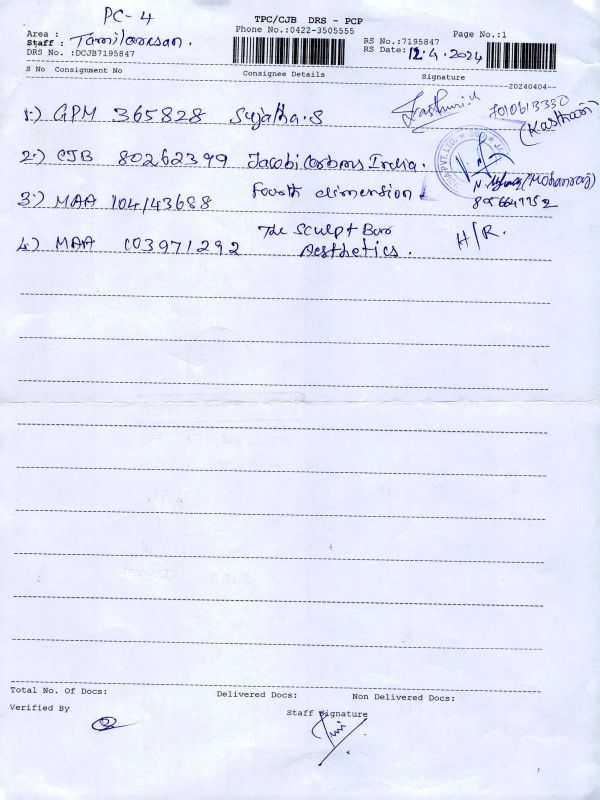 PC-4
TPC/CJB DRS - PCP
Area :
Phone No.:0422-3505555
Page No.:1
Staff : Tamilarasan.
RS No.:7195847
DRS No. :DCJB7195847
RS Date: 12.4.2024
S No Consignment No Consignee Details Signature
--20240404--
1.) GPM 365828 Sujatha.S
7010613330
(Kasthuri)
2.) CJB 80262399 Jacobi Carbons India.
3.) MAA 104143688 Fourth dimension
(Mohanraj)
4.) MAA 103971292 The Sculpt Buro
Aesthetics.
H/R.
Total No. Of Docs: Delivered Docs: Non Delivered Docs:
Verified By
Staff Signature